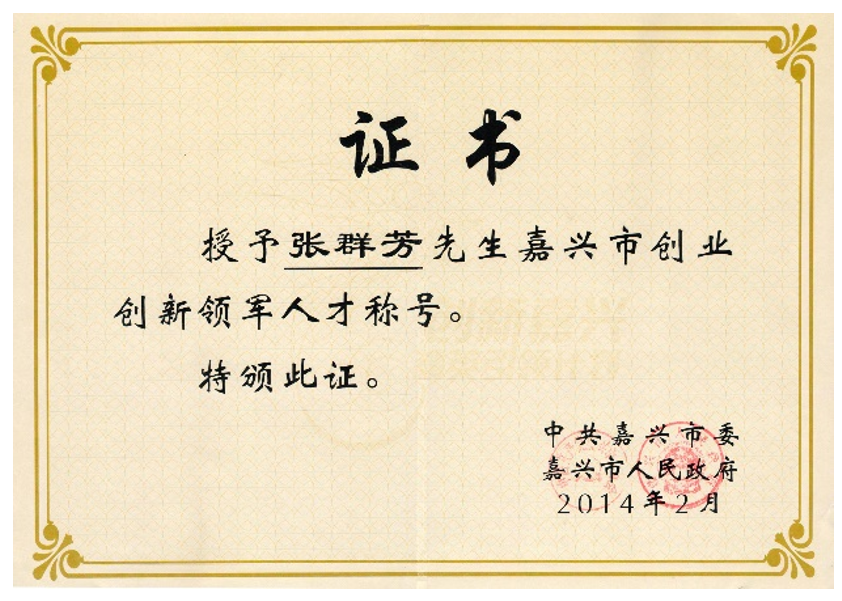 证书
授予张群芳先生嘉兴市创业
创新领军人才称号。
特颁此证。
中共嘉兴市委
嘉兴市人民政府
2014年2月